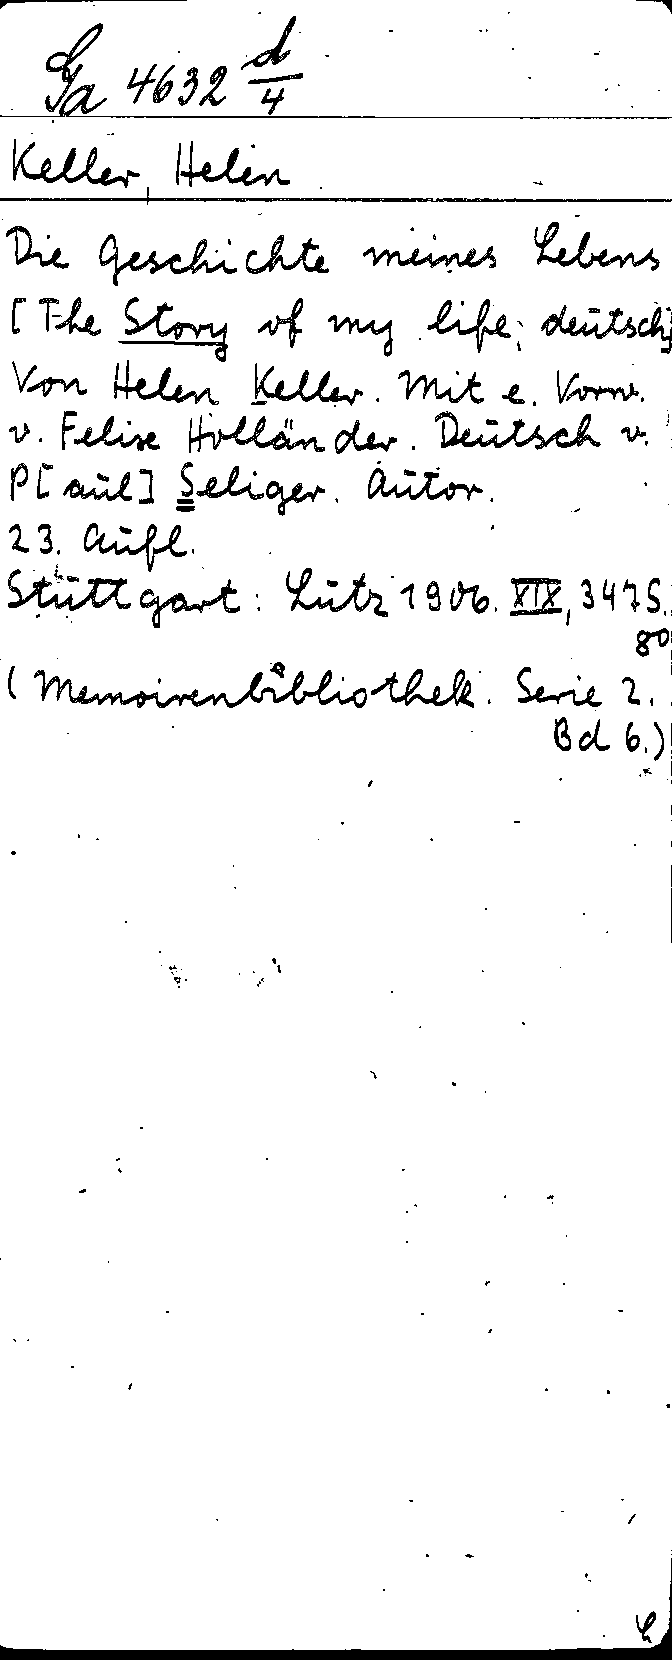 Ga 4632 d/4
Keller, Helen
Die Geschichte meines Lebens
[The Story of my life; deutsch]
Von Helen Keller. Mit e. Vorw.
v. Felix Holländer. Deutsch v.
P[aul] Seliger. Autor.
23. Aufl.
Stuttgart: Lutz 1906. XIX, 347 S.
8o
(Memoirenbibliothek. Serie 2.
Bd 6.)